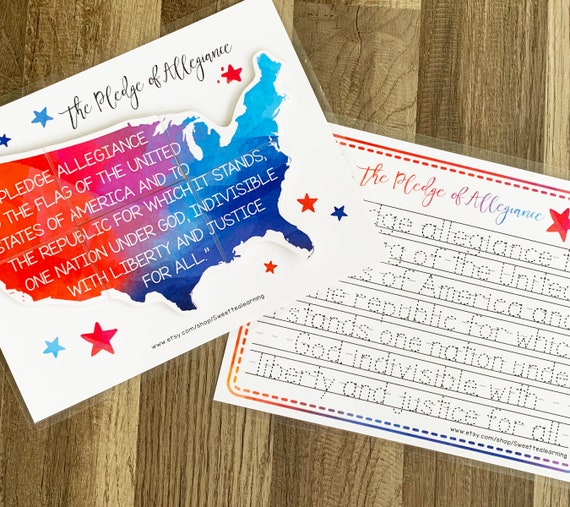 The Pledge of Allegiance
PLEDGE ALLEGIANCE
THE FLAG OF THE UNITED
STATES OF AMERICA AND TO
THE REPUBLIC FOR WHICH IT STANDS,
ONE NATION UNDER GOD, INDIVISIBLE
WITH LIBERTY AND JUSTICE
FOR ALL."
www.etsy.com/shop/Sweettealearning
The Pledge of Allegiance
allegiance
of the United
of America and
republic for which
stands one nation under
God indivisible with
liberty and justice for all.
www.etsy.com/shop/Sweettealearning